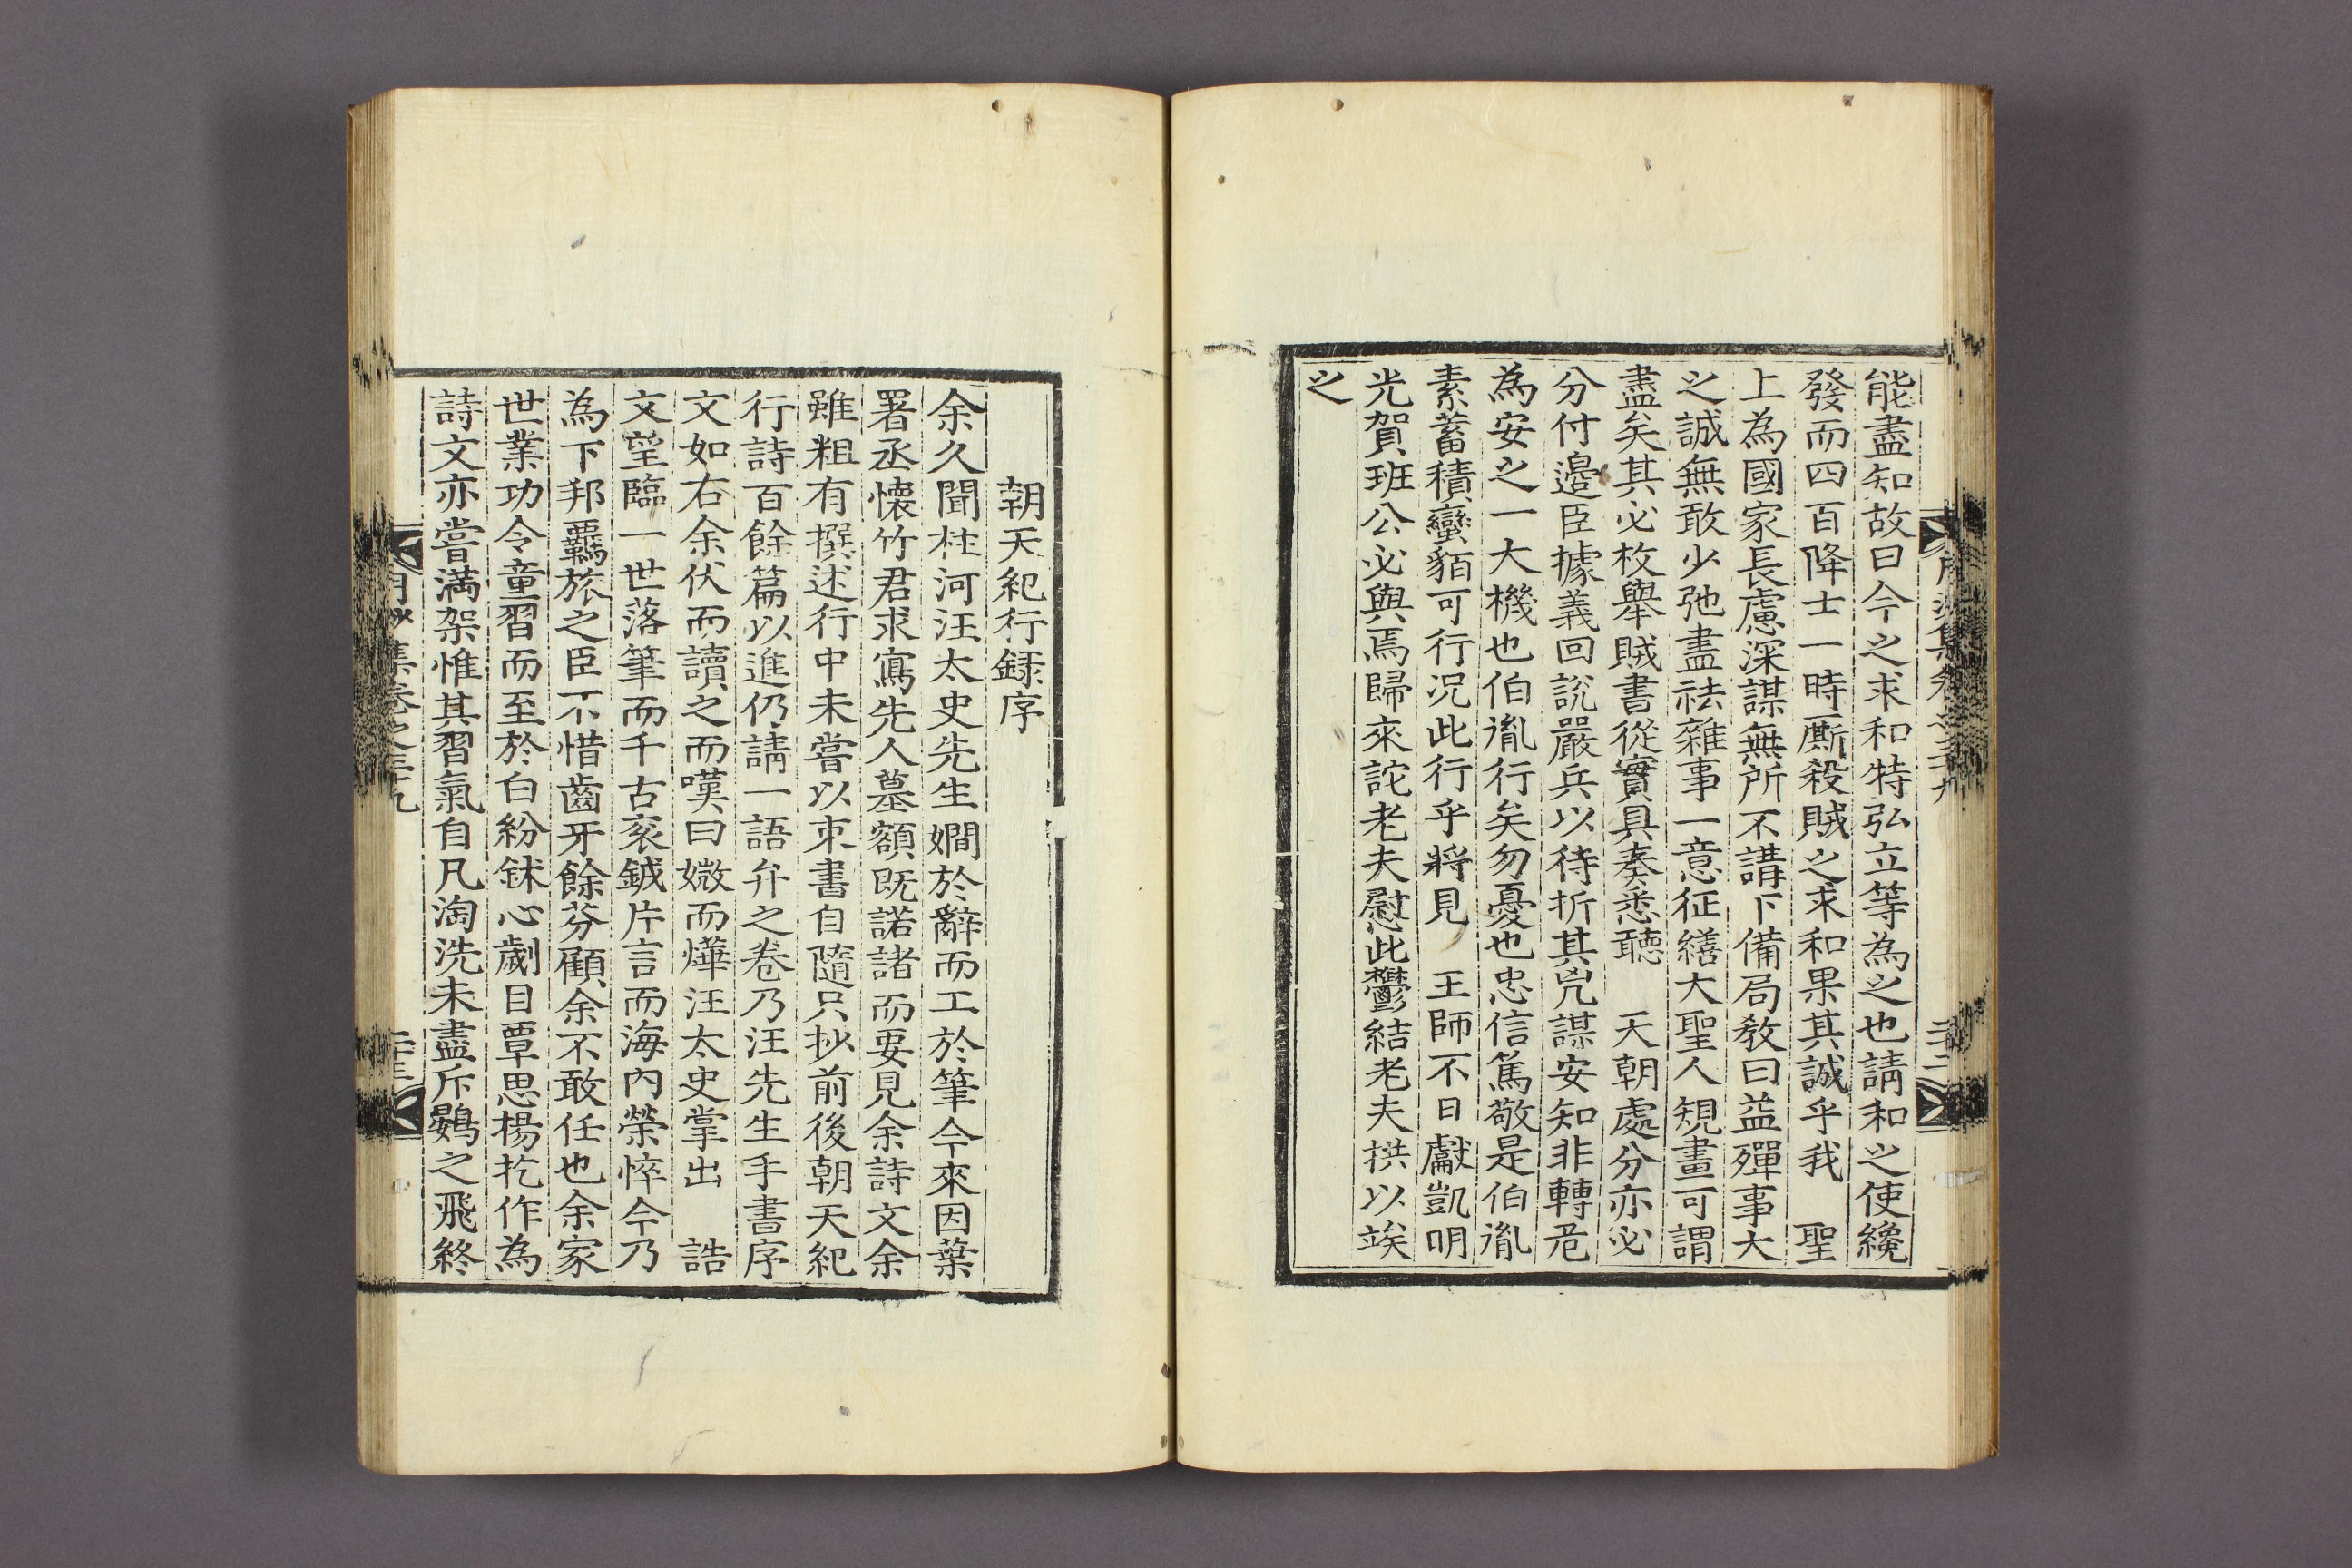 能盡知故曰今之求和特弘立等為之也請和之使纔
發而四百降士一時厮殺賊之求和果其誠乎我　聖
上為國家長慮深謀無所不講下備局教曰益殫事大
之誠無敢少弛盡祛雜事一意征繕大聖人規畫可謂
盡矣其必枚舉賊書從實具奏悉聽　天朝處分亦必
分付邊臣據義回說嚴兵以待折其兇謀安知非轉危
為安之一大機也伯胤行矣勿憂也忠信篤敬是伯胤
素蓄積蠻貊可行行况此行乎將見　王師不日獻凱明
光賀班公必與焉歸來詫老夫慰此鬱結老夫拱以竢
之
朝天紀行録序
余久聞柱河汪太史先生嫺於辭而工於筆今來因葉
署丞懷竹君求寫先人墓額既諾諸而要見余詩文余
雖粗有撰述行中未嘗以束書自隨只抄前後朝天紀
行詩百餘篇以進仍請一語弁之卷乃汪先生手書序
文如右余伏而讀之而嘆曰媺而燁汪太史掌出　誥
文望臨一世落筆而千古衮鉞片言而海內榮悴今乃
為下邦覊旅之臣不惜齒牙餘芬顧余不敢任也余家
世業功令童習而至於白紛鉥心劌目覃思楊扢作為
詩文亦嘗滿架惟其習氣自凡淘洗未盡斥鷃之飛終
集卷之三十九